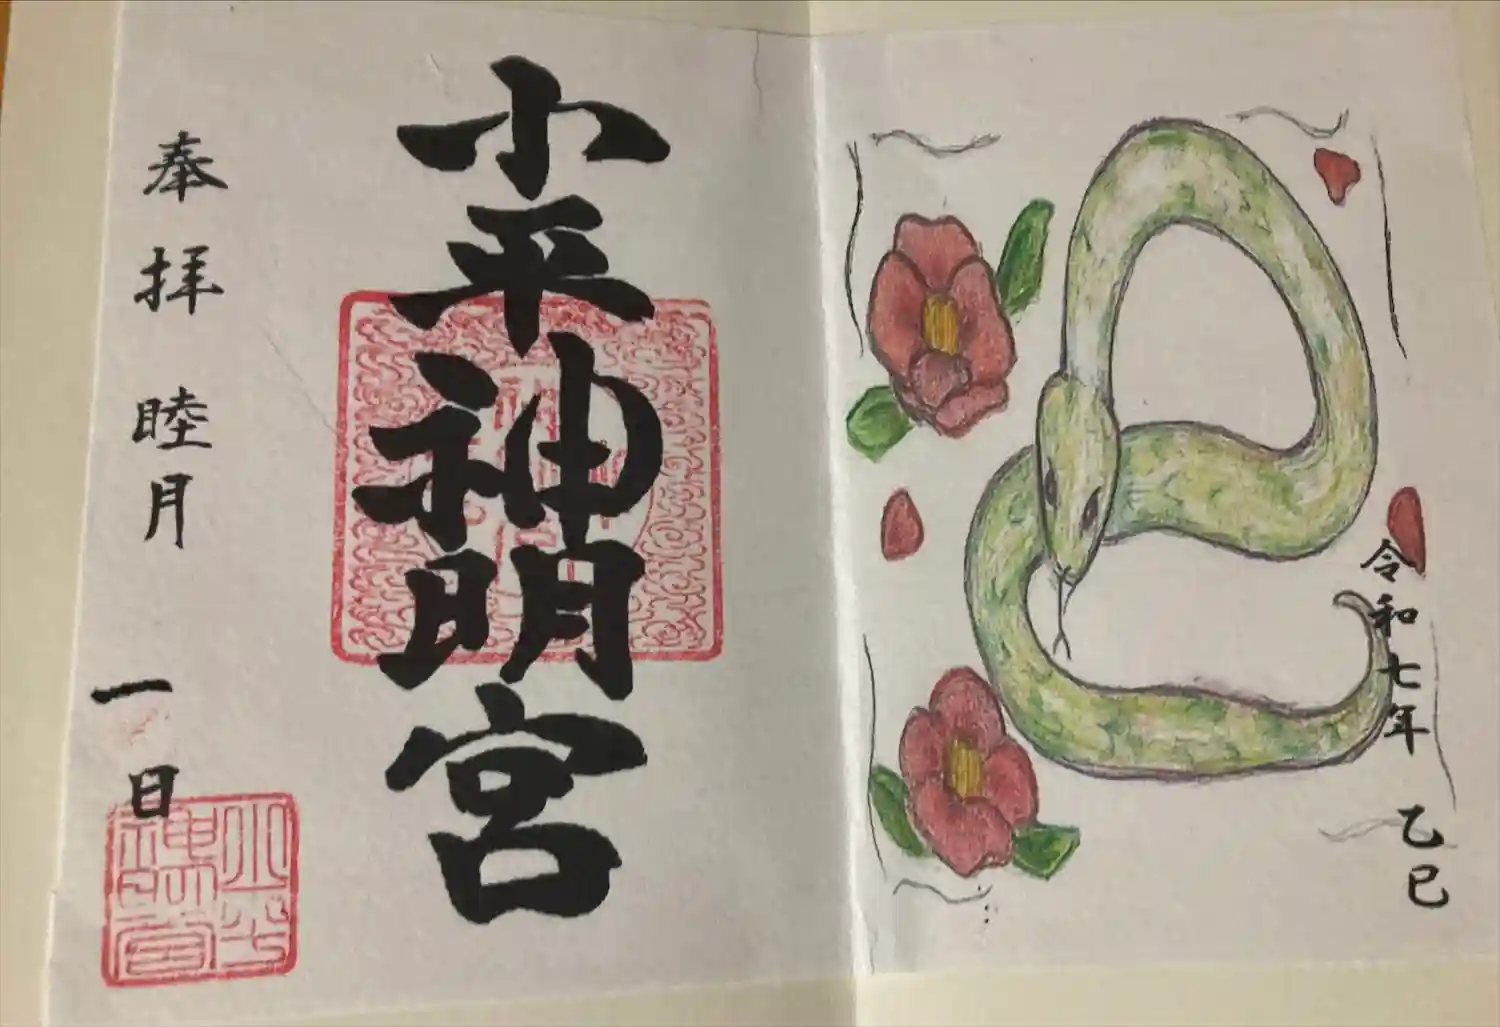 令和七年 乙巳
小平神明宮
奉拝 睦月 一日
小平神明宮